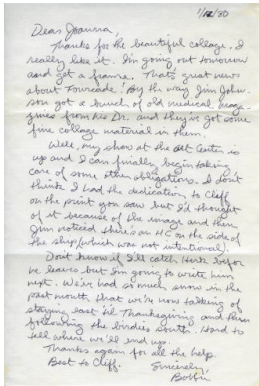 1/12/80
Dear Joanna,
Thanks for the beautiful collage. I
really like it. I'm going out tomorrow
and get a frame. That's great news
about Fourcade! By the way Jim John-
son got a bunch of old medical maga-
zines from his Dr. and they've got some
fine collage material in them.
Well, my show at the Art Center is
up and I can finally begin taking
care of some other obligations. I don't
think I had the dedication to Cliff
on the print you saw but I'd thought
of it because of the image and then
Jim noticed there's an HC on the side of
the ship (which was not intentional).
Don't know if I'll catch before
he leaves but I'm going to write him
next. We've had so much snow in the
past month that we're now talking of
staying east 'til Thanksgiving and then
following the birdies south. Hard to
tell where we'll end up.
Thanks again for all the help.
Best to Cliff. Sincerely,
Bobbi